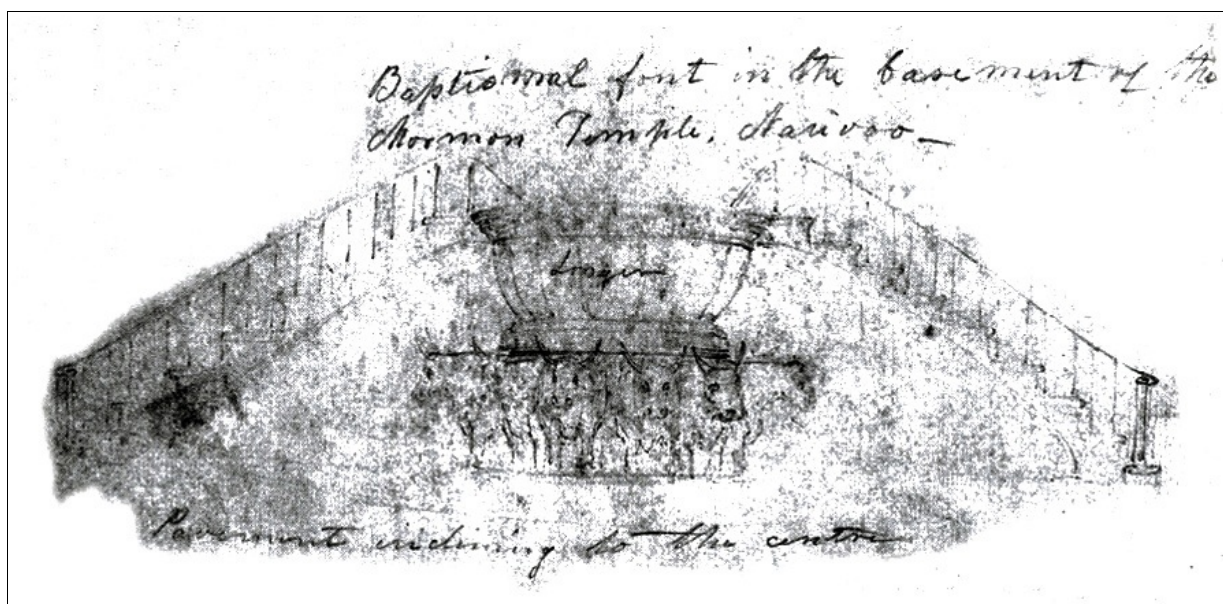 Baptismal font in the basement of the
Mormon Temple. Nauvoo—
Larger
Pavement inclining to the centre